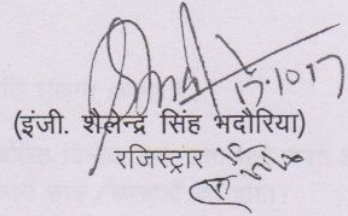 17.10.17
(इंजी. शैलेन्द्र सिंह भदौरिया)
रजिस्ट्रार